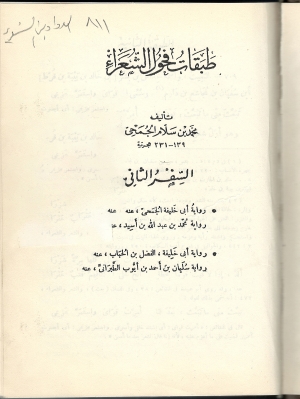 ٨١١
طبقات فحول الشعراء
تأليف
محمد بن سلام الجمحي
١٣٩ - ٢٣١ هجرية
السفر الثاني
• رواية أبي خليفة الجمحي، عنه عنه
رواية محمد بن عبد الله بن أسيد،
• رواية أبي خليفة، الفضل بن الحباب، عنه
رواية سليمان بن أحمد بن أيوب الطبراني، عنه